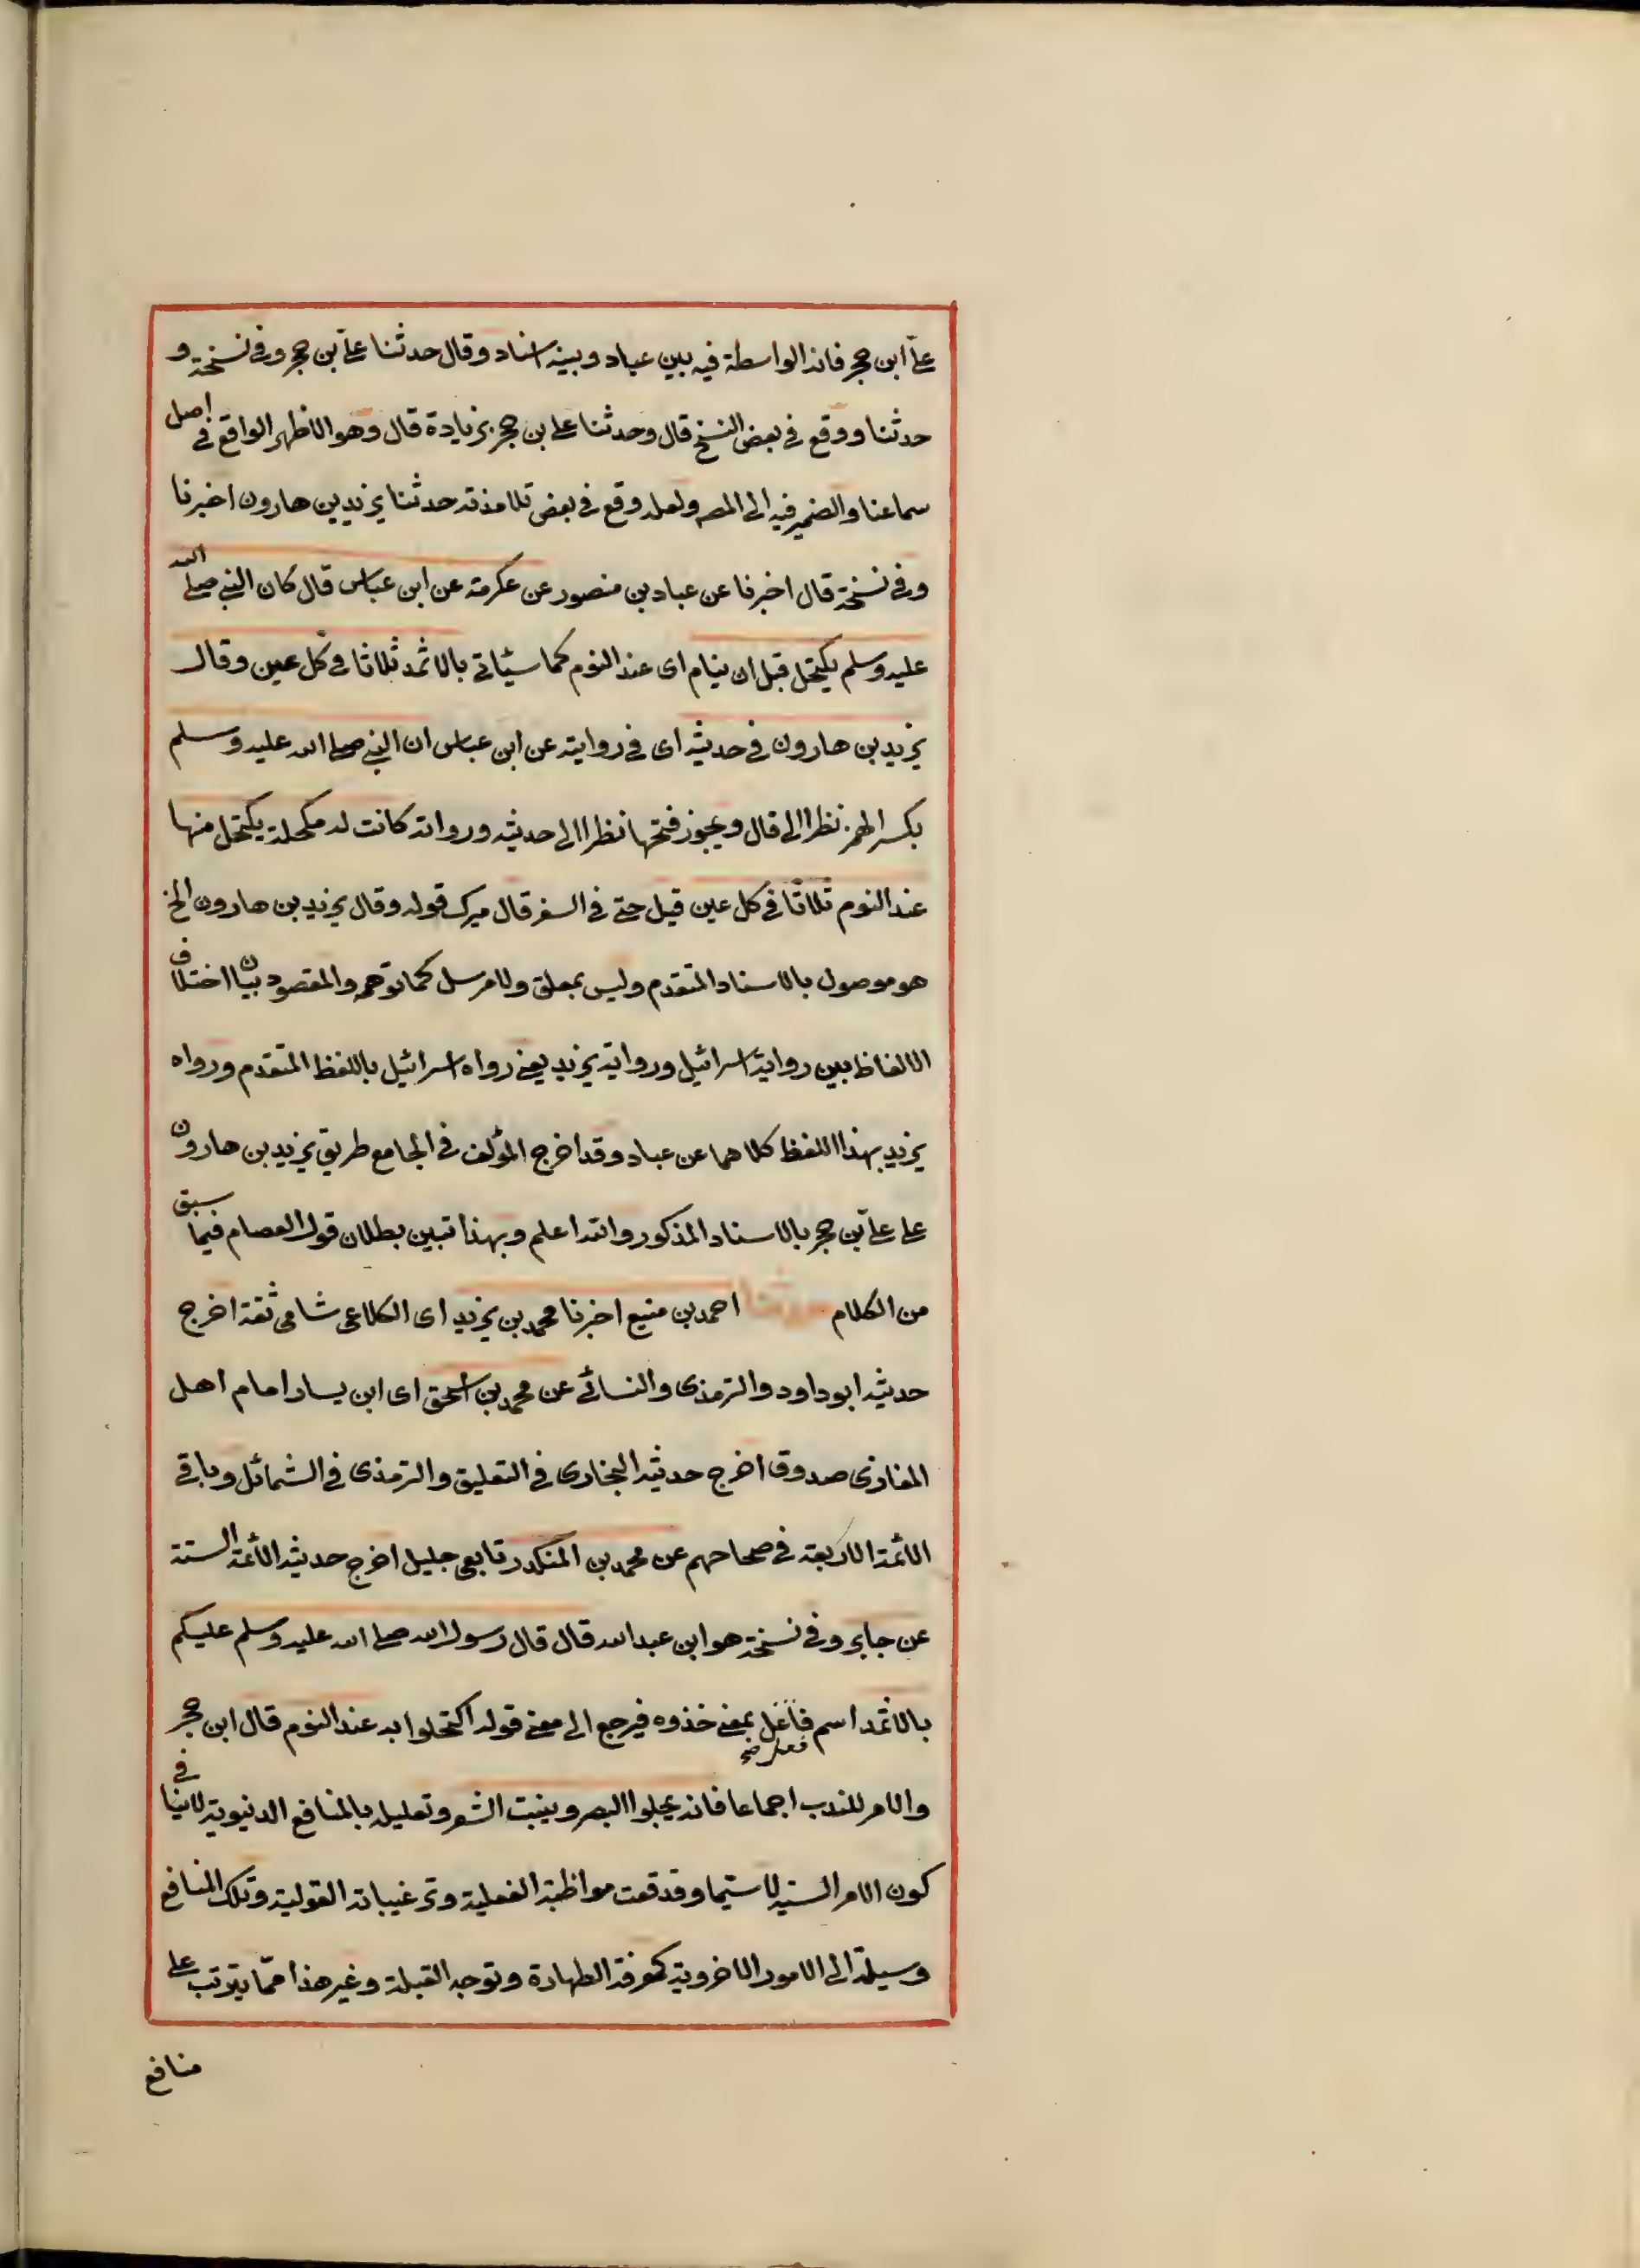 علىّ ابن حجر فانه الواسطة فيه بين عباد وبينه اسناد وقال حدثنا علىّ بن حجر وفى نسخة و
حدثنا ووقع فى بعض النسخ قال وحدثنا على بن حجر بزيادة قال وهو الاظهر الواقع فى اصل
سماعنا والضمير فيه الى المصـ ولعله وقع فى بعض تلامذته حدثنا يزيد بن هارون اخبرنا
وفى نسخة قال اخبرنا عن عباد بن منصور عن عكرمة عن ابن عباس قال كان النبى صلى الله
عليه وسلم يكتحل قبل ان ينام اى عند النوم كما سيأتى بالاثمد ثلاثا فى كل عين وقال
يزيد بن هارون فى حديثه اى فى روايته عن ابن عباس ان النبى صلى الله عليه وسلم
بكسر الهمز نظرا الى قال ويجوز فتحها نظرا الى حديثه ورواته كانت له مكحلة يكتحل منها
عند النوم ثلاثا فى كل عين قيل حتى فى السفر قال ميرك قوله وقال يزيد بن هارون الخ
هو موصول بالاسناد المتقدم وليس بمعلق ولا مرسل كما توهمه والمقصود بيان اختلاف
الالفاظ بين رواية اسرائيل ورواية يزيد يعنى رواه اسرائيل باللفظ المتقدم ورواه
يزيد بهذا اللفظ كلاهما عن عباد وقد اخرج المؤلف فى الجامع طريق يزيد بن هارون
على علىّ بن حجر بالاسناد المذكور والله اعلم وبهذا تبين بطلان قول العصام فيما سبق
من الكلام حدثنا احمد بن منيع اخبرنا محمد بن يزيد اى الكلاعى شامى ثقة اخرج
حديثه ابو داود والترمذى والنسائى عن محمد بن اسحق اى ابن يسار امام اهل
المغازى صدوق اخرج حديثه البخارى فى التعليق والترمذى فى الشمائل وباقى
الائمة الاربعة فى صحاحهم عن محمد بن المنكدر تابعى جليل اخرج حديثه الائمة الستة
عن جابر وفى نسخة هو ابن عبد الله قال قال رسول الله صلى الله عليه وسلم عليكم
بالاثمد اسم فاعل بمعنى خذوه فيرجع الى معنى قوله اكتحلوا به عند النوم قال ابن حجر
فعل صح
والامر للندب اجماعا فانه يجلوا البصر وينبت الشعر وتعليله بالمنافع الدنيوية لا ينافى
كون الامر السنيه لا سيما وقد قعت مواظبة الفعلية وترغيباته القولية وتلك المنافع
وسيلة الى الامور الاخروية كمعرفة الطهارة وتوجه القبلة وغير هذا ممّا يترتب على
منافع